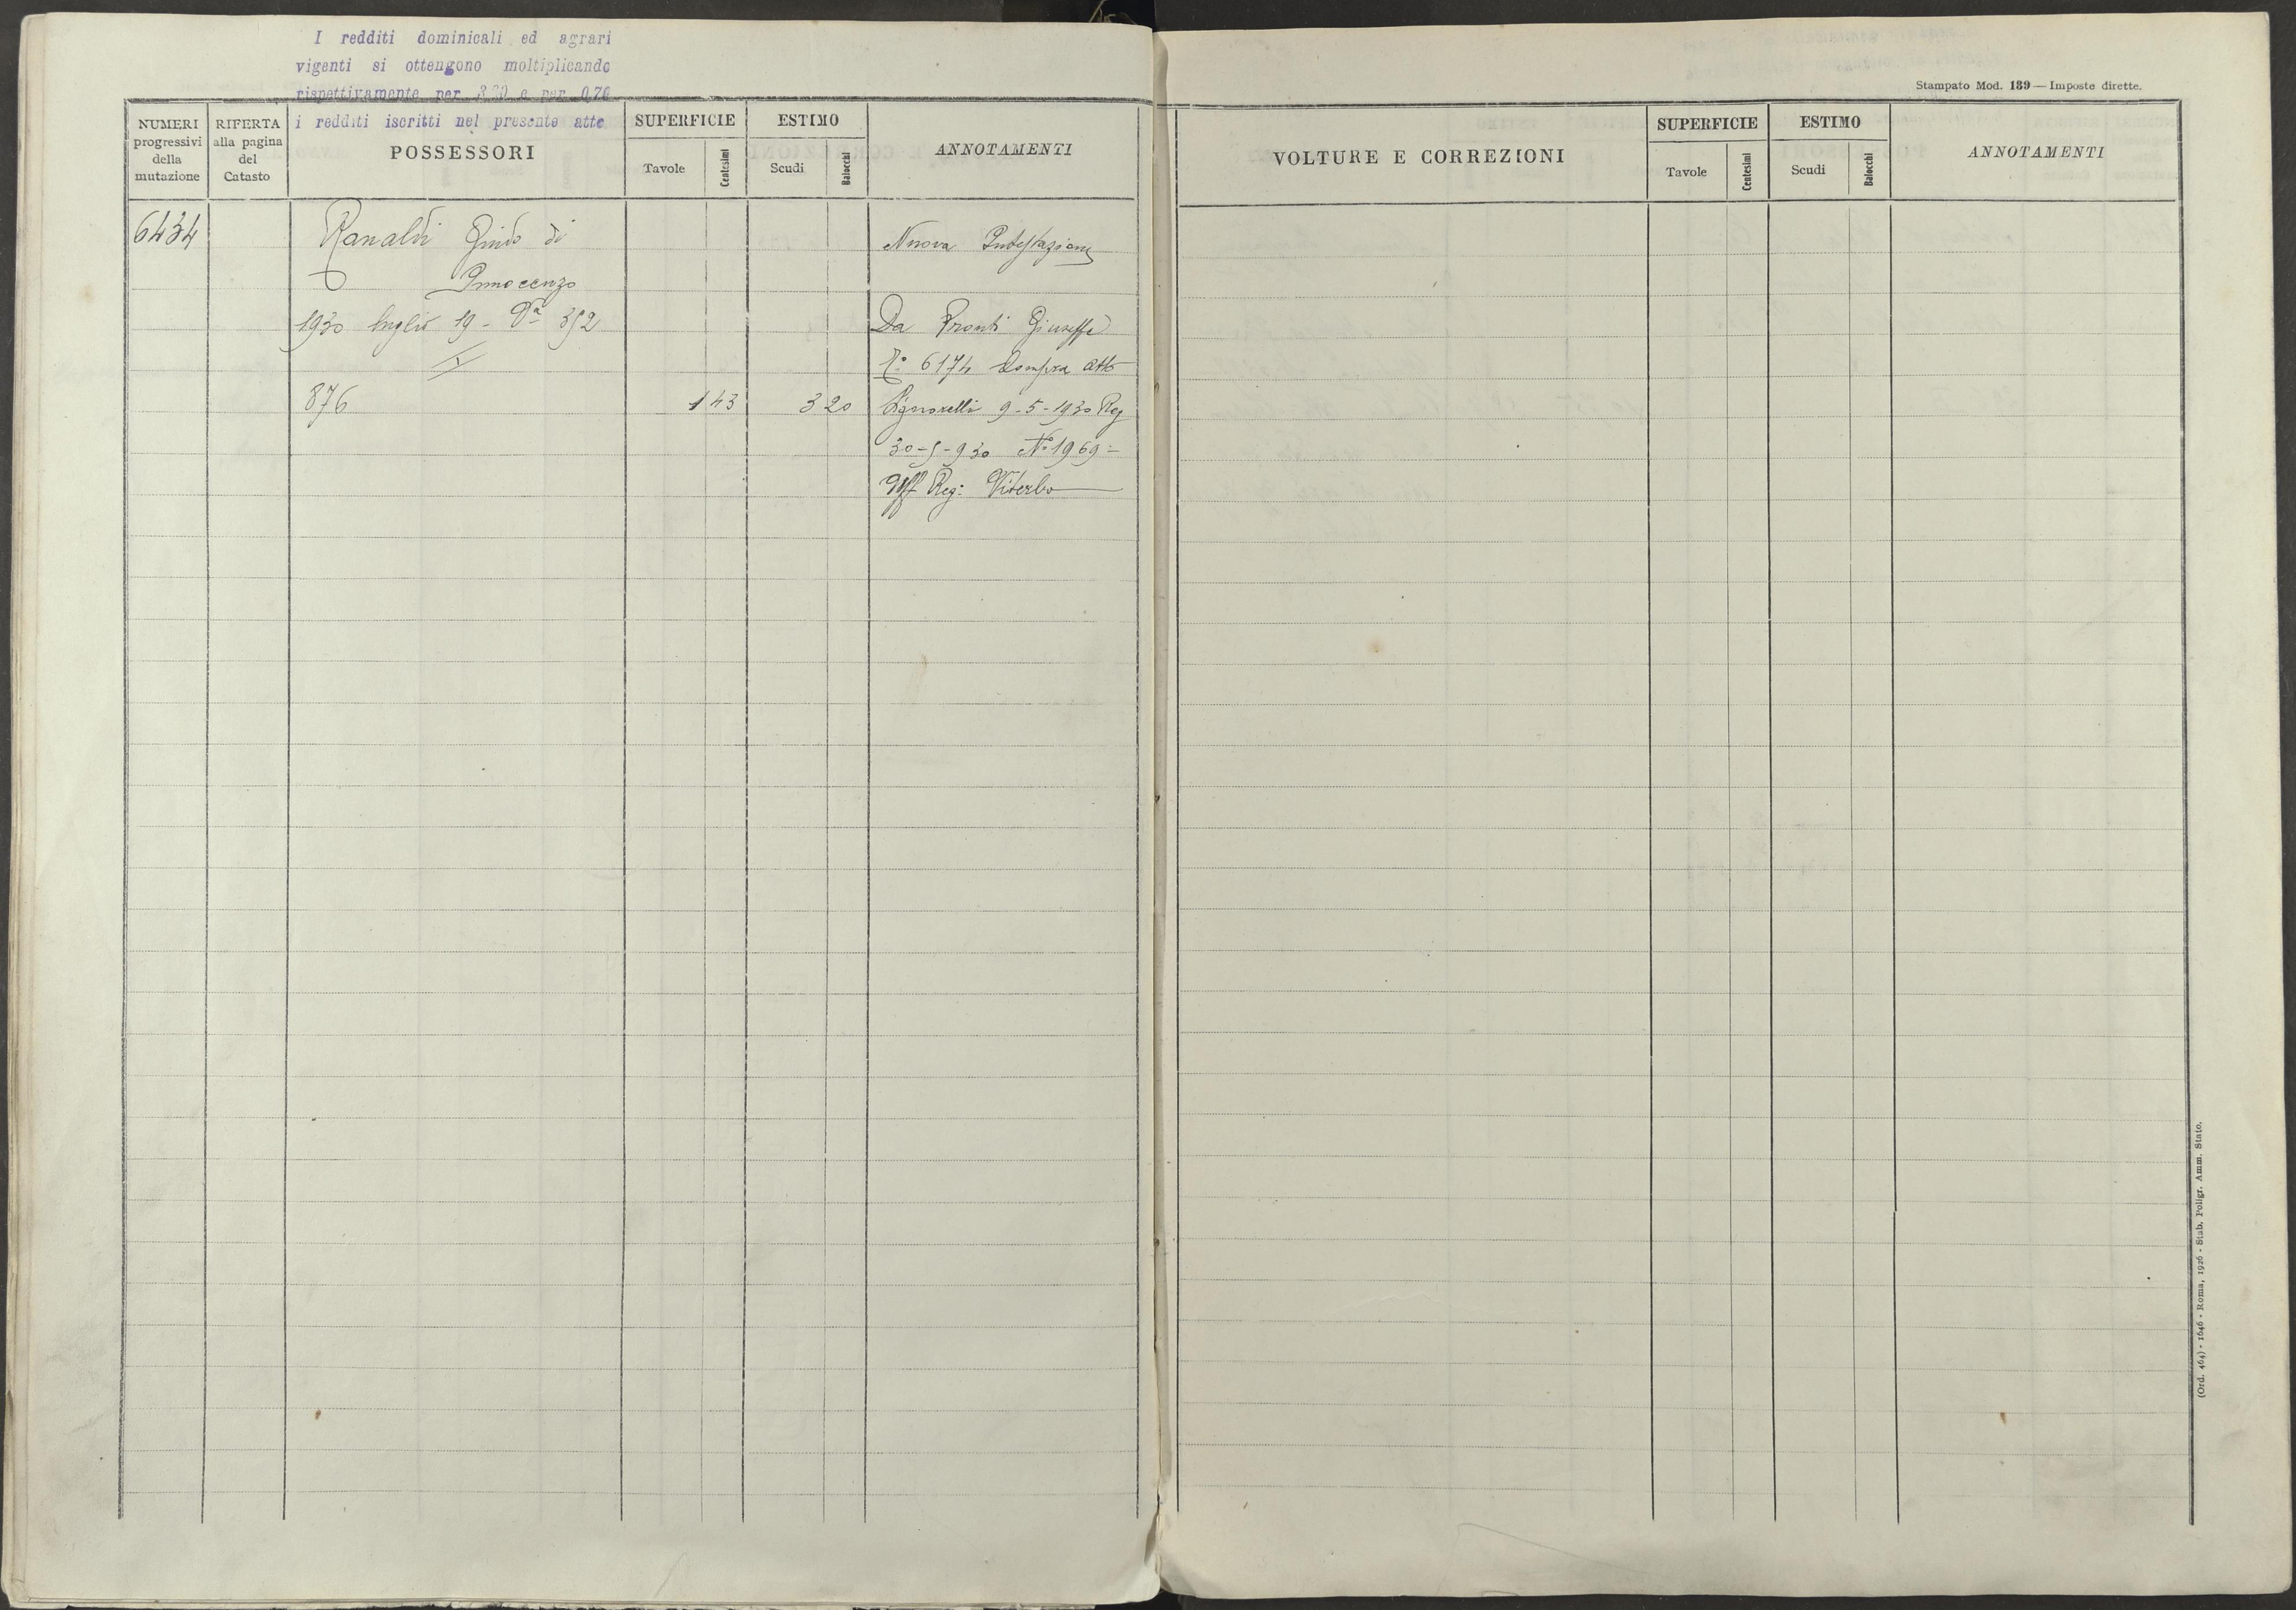 I redditi dominicali ed agrari
vigenti si ottengono moltiplicando
rispettivamente per 3,20 e per 0,70
i redditi iscritti nel presente atto
NUMERI
progressivi
della
mutazione
RIFERTA
alla pagina
del
Catasto
POSSESSORI
SUPERFICIE
Tavole
Centesimi
ESTIMO
Scudi
Baiocchi
ANNOTAMENTI
6434
Ranaldi Guido di
Innocenzo
1930 luglio 19 - Va 352
876
1 43
3 20
Nuova Intestazione
Da Pronti Giuseppe
No 6174 Compra atto
Signorelli 9-5-1930 Reg
30-5-930 No 1969 =
Uff Reg: Viterbo
Stampato Mod. 139 — Imposte dirette.
VOLTURE E CORREZIONI
SUPERFICIE
Tavole
Centesimi
ESTIMO
Scudi
Baiocchi
ANNOTAMENTI
(Ord. 464) - 1646 - Roma, 1926 - Stab. Poligr. Amm. Stato.